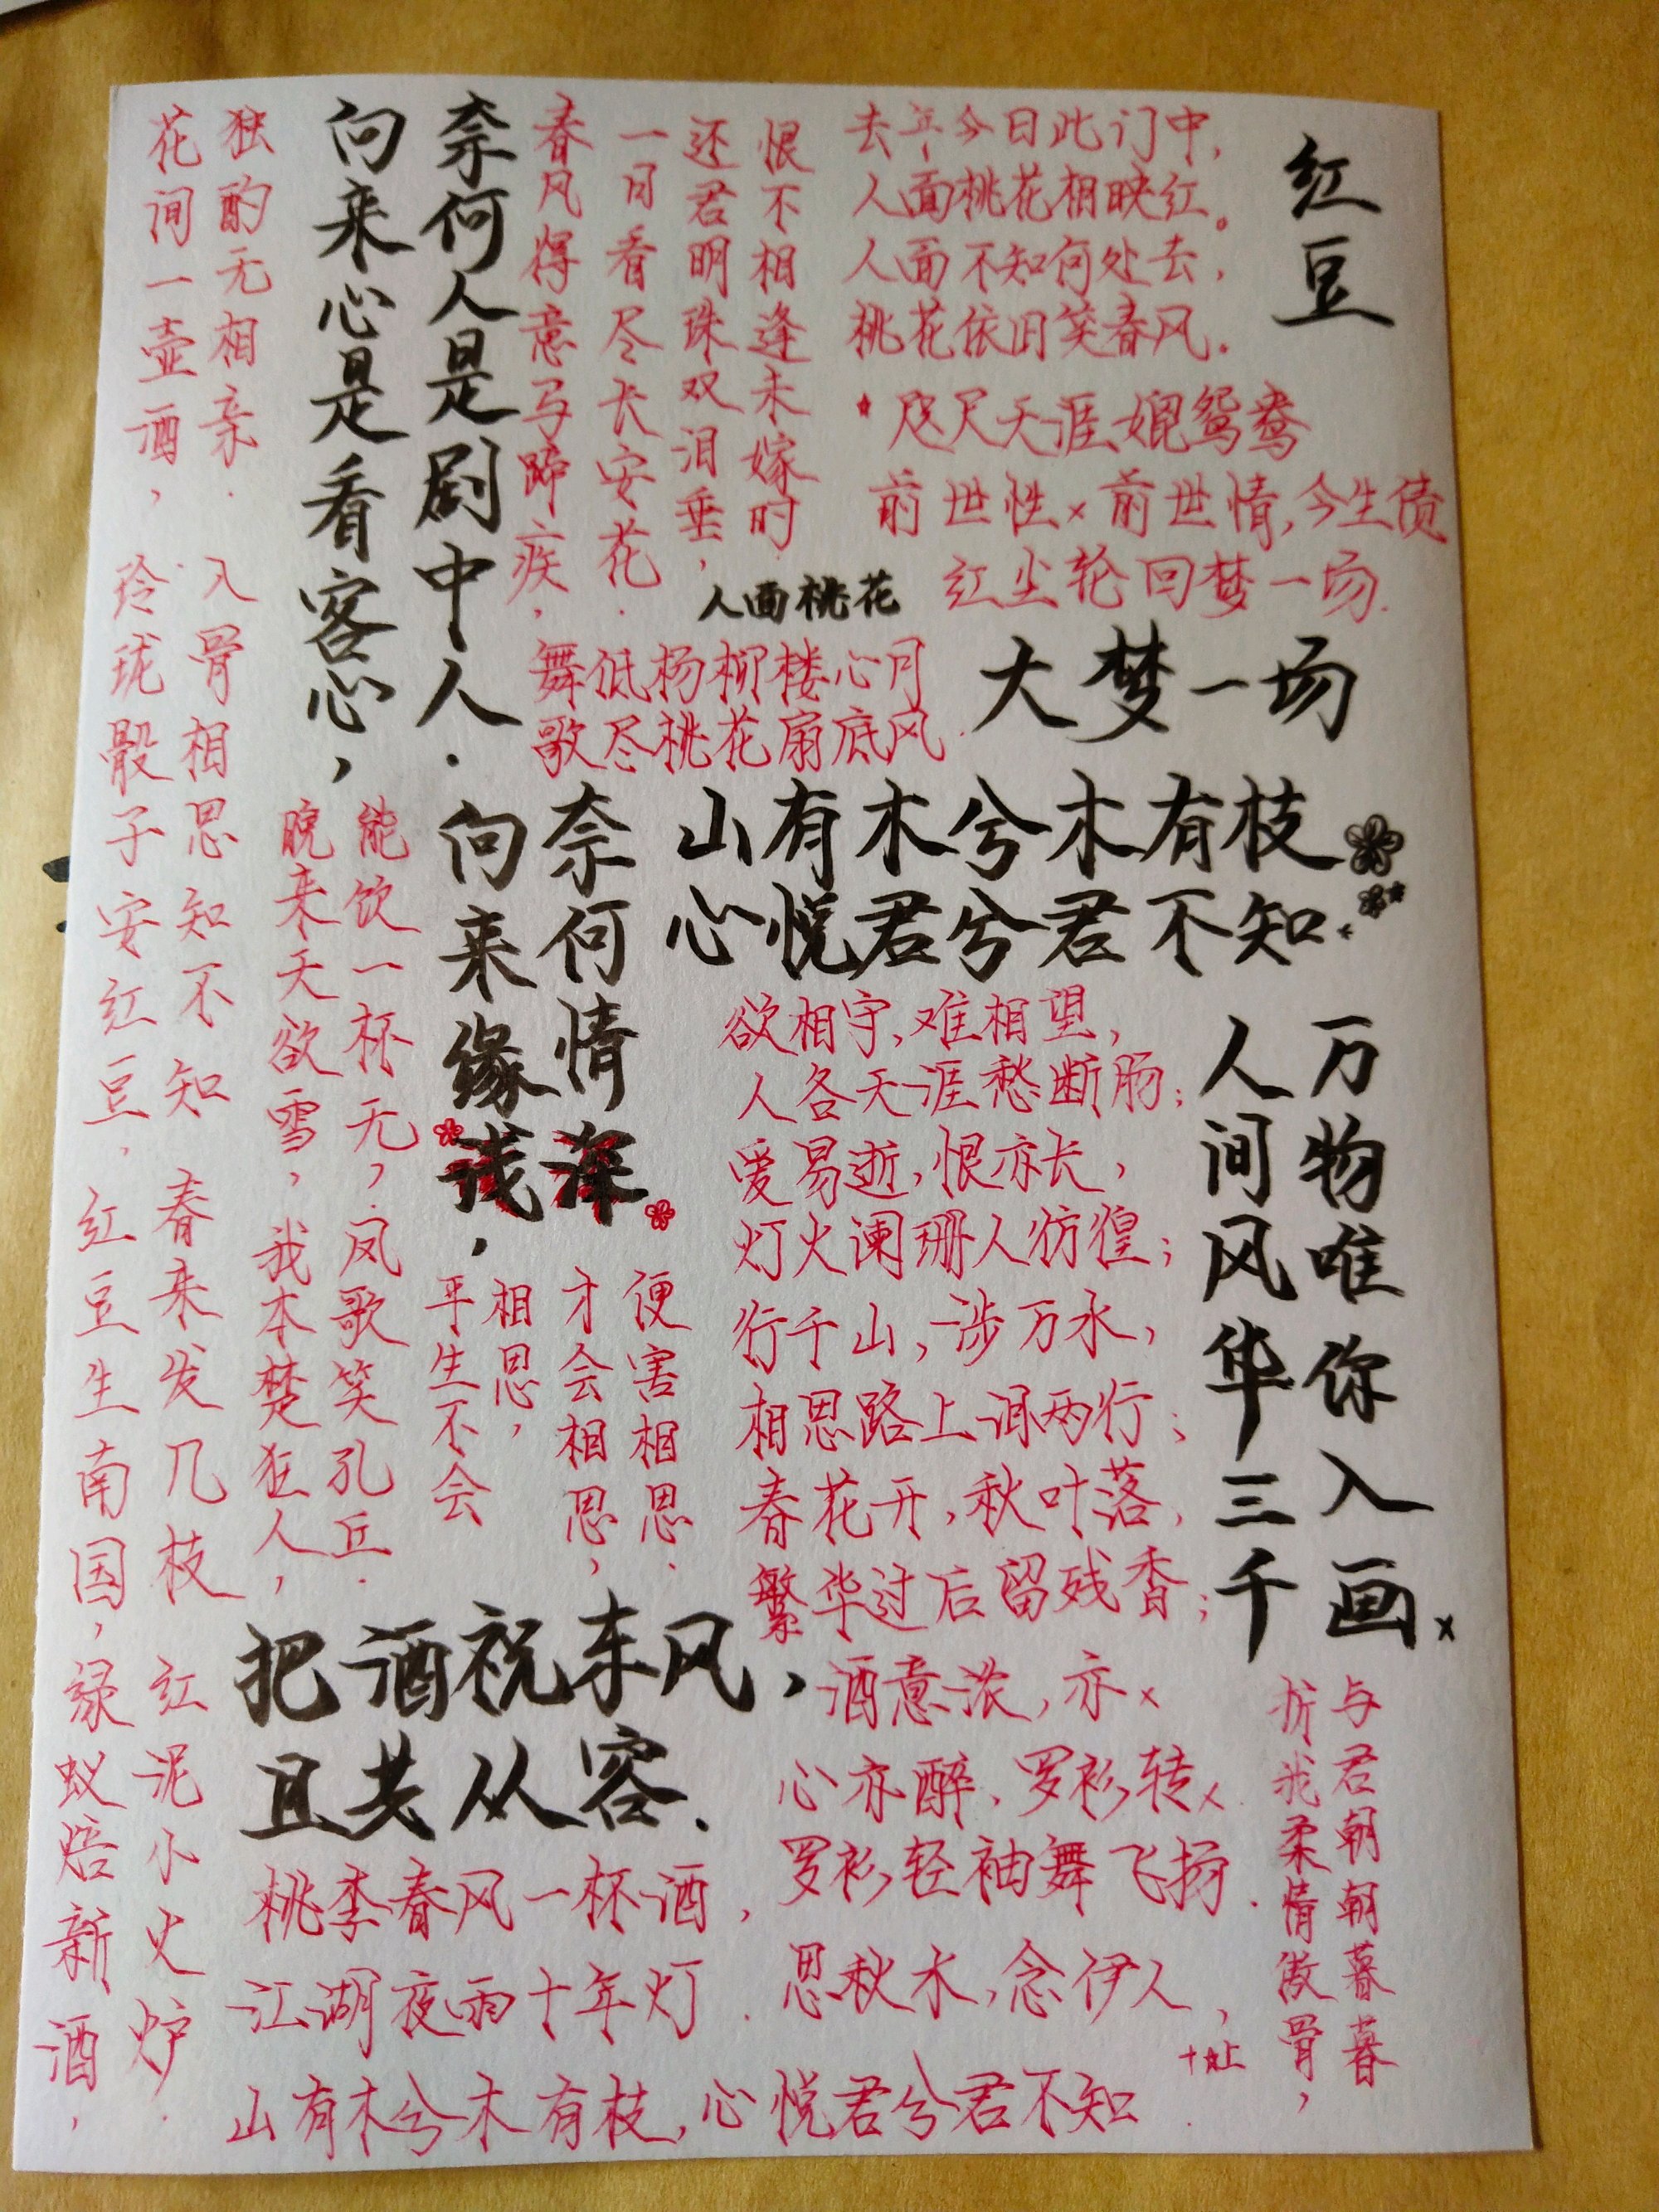 红豆
去年今日此门中,
人面桃花相映红。
人面不知何处去,
桃花依旧笑春风.
咫尺天涯媲鸳鸯
前世性×前世情,今生债
红尘轮回梦一场.
大梦一场
恨不相逢未嫁时
还君明珠双泪垂,
一日看尽长安花.
春风得意马蹄疾,
人面桃花
舞低杨柳楼心月
歌尽桃花扇底风.
奈何人是剧中人.
向来心是看客心,
独酌无相亲.
花间一壶酒,
入骨相思知不知
玲珑骰子安红豆,
春来发几枝
红豆生南国,
红泥小火炉.
绿蚁焙新酒,
山有木兮木有枝
心悦君兮君不知.
奈何情深
向来缘浅,
能饮一杯无,
晚来天欲雪,
凤歌笑孔丘.
我本楚狂人,
便害相思.
才会相思,
相思,
平生不会
欲相守,难相望,
人各天涯愁断肠;
爱易逝,恨亦长,
灯火阑珊人彷徨;
行千山,涉万水,
相思路上泪两行;
春花开,秋叶落,
繁华过后留残香;
酒意浓,亦×
心亦醉,罗衫转×
罗衫轻袖舞飞扬.
思秋水,念伊人,
万物唯你入画.×
人间风华三千
与君朝朝暮暮
折我柔情傲骨,
把酒祝东风,
且共从容.
桃李春风一杯酒,
江湖夜雨十年灯.
山有木兮木有枝,心悦君兮君不知.